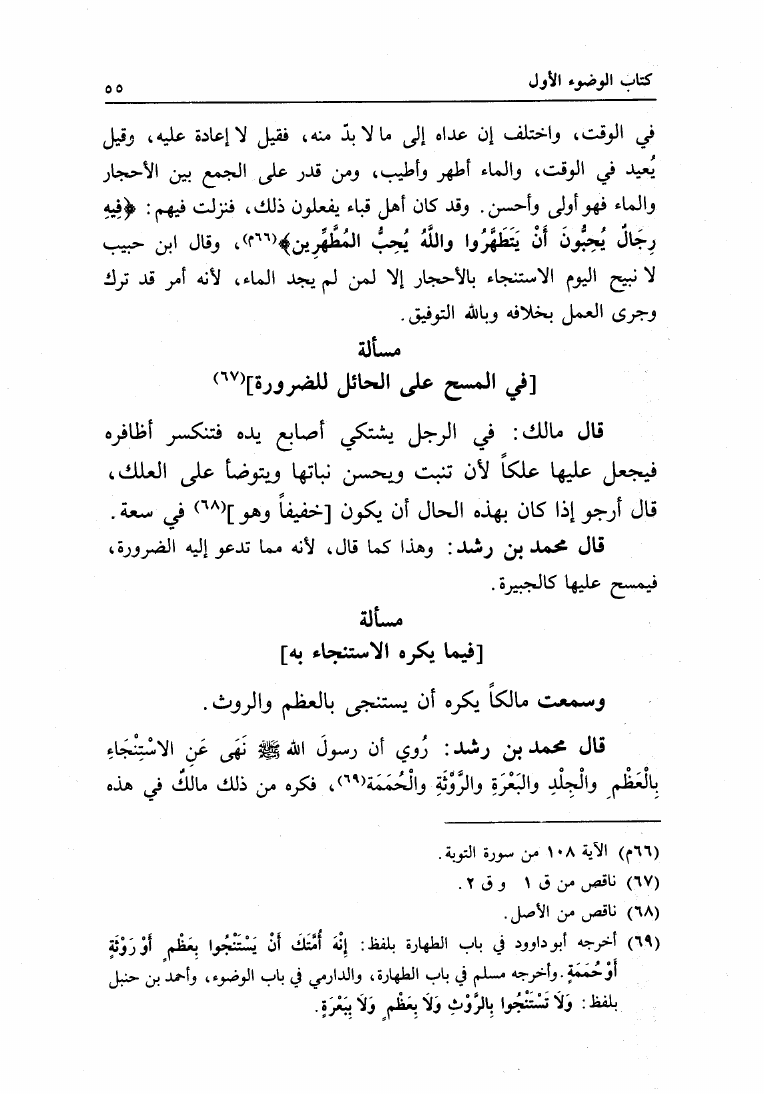 كتاب الوضوء الأول ٥٥
في الوقت، واختلف إن عداه إلى ما لا بدّ منه، فقيل لا إعادة عليه، وقيل
يُعيد في الوقت، والماء أطهر وأطيب، ومن قدر على الجمع بين الأحجار
والماء فهو أولى وأحسن. وقد كان أهل قباء يفعلون ذلك، فنزلت فيهم: ﴿فِيهِ
رِجَالٌ يُحِبُّونَ أَنْ يَتَطَهَّرُوا واللَّهُ يُحِبُّ المُطَّهِّرِين﴾(٦٦م)، وقال ابن حبيب
لا نبيح اليوم الاستنجاء بالأحجار إلا لمن لم يجد الماء، لأنه أمر قد ترك
وجرى العمل بخلافه وبالله التوفيق.
مسألة
[في المسح على الحائل للضرورة](٦٧)
قال مالك: في الرجل يشتكي أصابع يده فتنكسر أظافره
فيجعل عليها علكاً لأن تنبت ويحسن نباتها ويتوضأ على العلك،
قال أرجو إذا كان بهذه الحال أن يكون [خفيفاً وهو](٦٨) في سعة.
قال محمد بن رشد: وهذا كما قال، لأنه مما تدعو إليه الضرورة،
فيمسح عليها كالجبيرة.
مسألة
[فيما يكره الاستنجاء به]
وسمعت مالكاً يكره أن يستنجى بالعظم والروث.
قال محمد بن رشد: رُوي أن رسولَ الله ﷺ نَهَى عَنِ الاسْتِنْجَاءِ
بِالْعَظْمِ والْجِلْدِ والبَعْرَةِ والرَّوْثَةِ والْحُمَمَة(٦٩)، فكره من ذلك مالكٌ في هذه
(٦٦م) الآية ١٠٨ من سورة التوبة.
(٦٧) ناقص من ق ١ و ق ٢.
(٦٨) ناقص من الأصل.
(٦٩) أخرجه أبو داوود في باب الطهارة بلفظ: إِنْهَ أُمَّتَكَ أَنْ يَسْتَنْجُوا بِعَظْمٍ أَوْ رَوْثَةٍ
أَوْ حُمَمَةٍ. وأخرجه مسلم في باب الطهارة، والدارمي في باب الوضوء، وأحمد بن حنبل
بلفظ: وَلَا تَسْتَنْجُوا بِالرَّوْثِ وَلَا بِعَظْمٍ وَلَا بِبَعْرَةٍ.